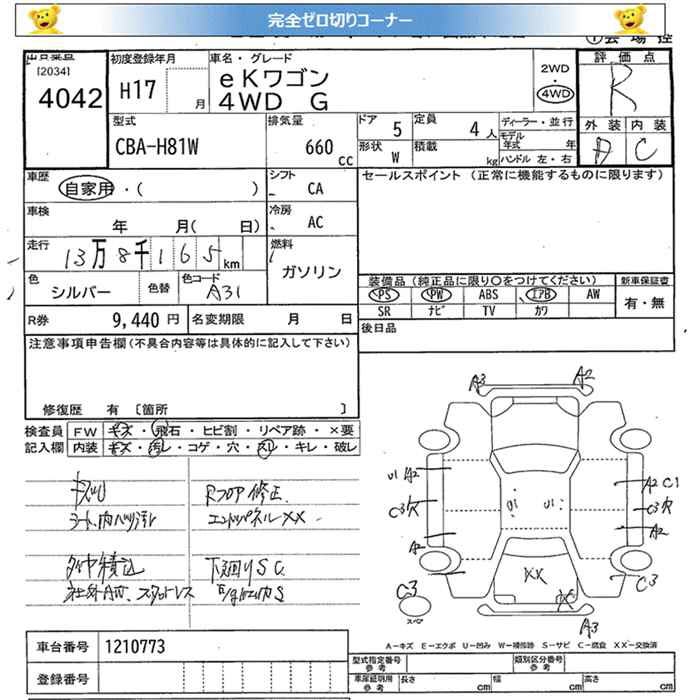 完全ゼロ切りコーナー
[2034]
4042
初度登録年月
H17 月
車名・グレード
eKワゴン
4WD G
2WD
・
4WD
評価点
R
外装 内装
D C
型式
CBA-H81W
排気量
660 cc
ドア 5
定員 4人
形状 W
積載 kg
ディーラー・並行
モデル年式 年
ハンドル 左・右
車歴
自家用・( )
シフト
CA
セールスポイント (正常に機能するものに限ります)
車検
年 月( 日)
冷房
AC
走行
13万8千165 km
燃料
ガソリン
色
シルバー
色替
色コード
A31
装備品 (純正品に限り○をつけてください)
PS PW ABS エアB AW
SR ナビ TV カワ
新車保証書
有・無
R券 9,440円
名変期限 月 日
後日品
注意事項申告欄(不具合内容等は具体的に記入して下さい)
修復歴 有 [箇所 ]
検査員
記入欄
FW キズ・飛石・ヒビ割・リペア跡・×要
内装 キズ・汚レ・コゲ・穴・スレ・キレ・破レ
Rフロア修正
エンドパネルXX
シート、内ハリ汚レ
タイヤ積込
下廻りSC
社外AW、スタットレス
A3 A2
U1 A2
C3穴
A2
A2 C1
C3穴
A2
U1
U1
XX
C3
スペア
C3
A3
A-キズ E-エクボ U-凹み W-補修跡 S-サビ C-腐食 XX-交換済
車台番号 1210773
登録番号
型式指定番号
参考
類別区分番号
参考
車庫証明用
参考
長さ cm
幅 cm
高さ cm